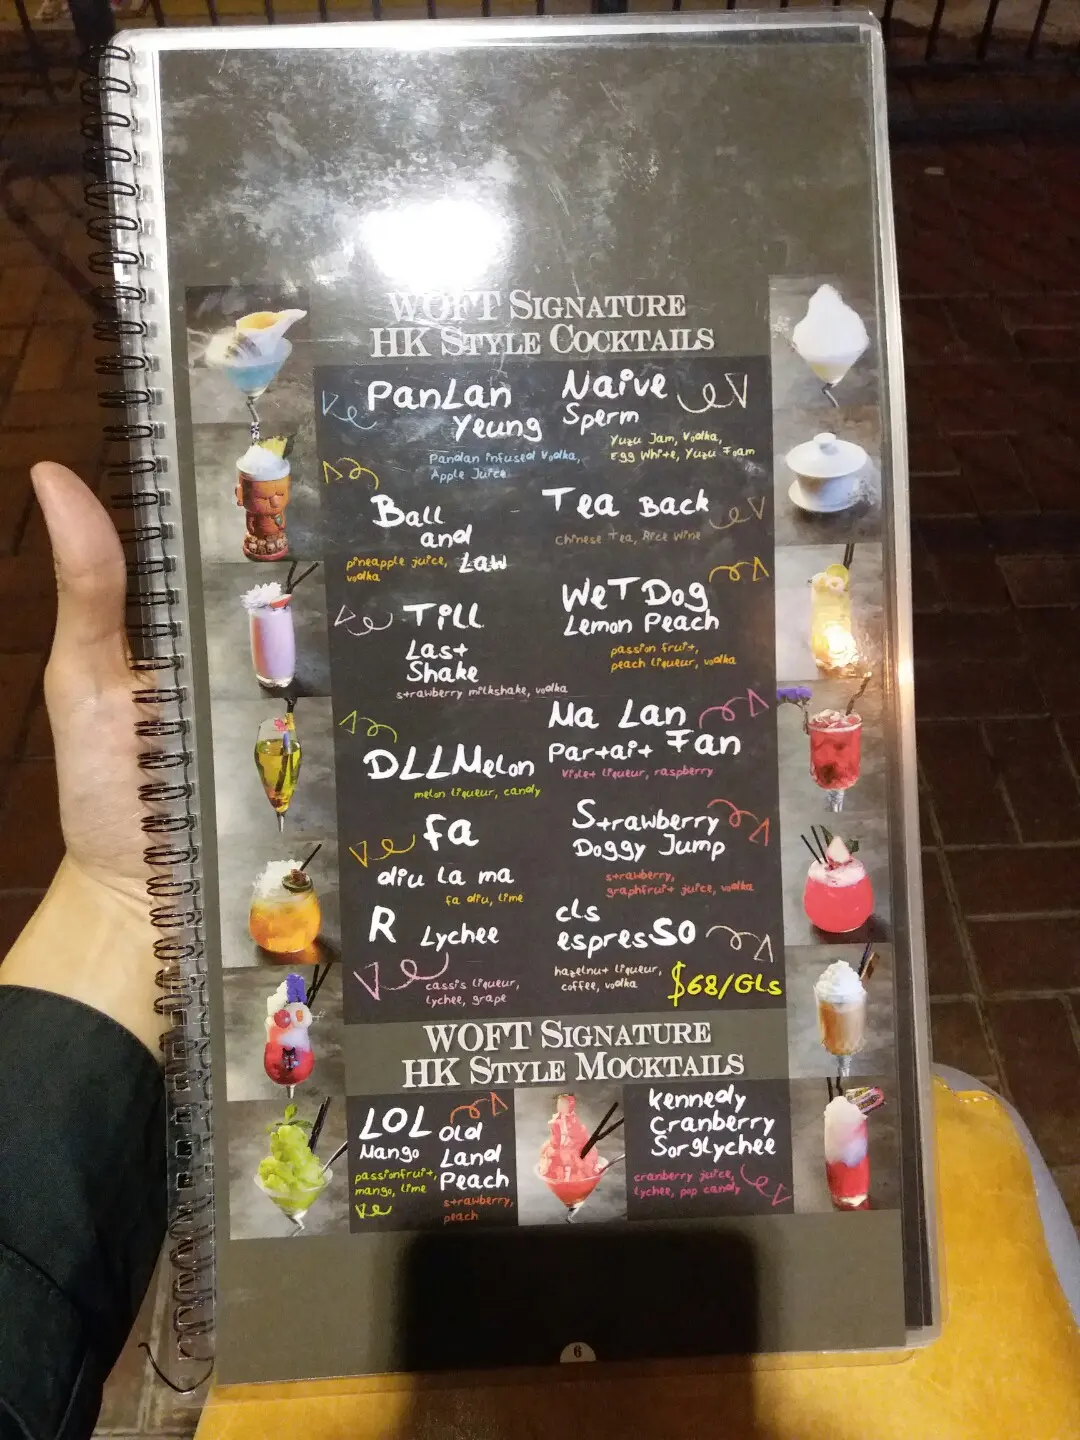 WOFT SIGNATURE
HK STYLE COCKTAILS
PanLan
Yeung
Pandan infused Vodka,
Apple Juice
Naive
Sperm
Yuzu Jam, Vodka,
Egg White, Yuzu Foam
Ball
and
Law
pineapple juice,
vodka
Tea Back
Chinese Tea, Rice Wine
Till
Last
Shake
strawberry milkshake, vodka
WeT Dog
Lemon Peach
passion fruit,
peach liqueur, vodka
DLLMelon
melon liqueur, candy
Ma Lan
Partait Fan
Violet liqueur, raspberry
fa
diu la ma
fa diu, lime
Strawberry
Doggy Jump
strawberry,
graphfruit juice, vodka
R Lychee
cassis liqueur,
lychee, grape
cls
espresSO
hazelnut liqueur,
coffee, vodka
$68/GLs
WOFT SIGNATURE
HK STYLE MOCKTAILS
LOL
Mango
passionfruit,
mango, lime
Old
Land
Peach
strawberry,
peach
Kennedy
Cranberry
Sorglychee
cranberry juice,
lychee, pop candy
6